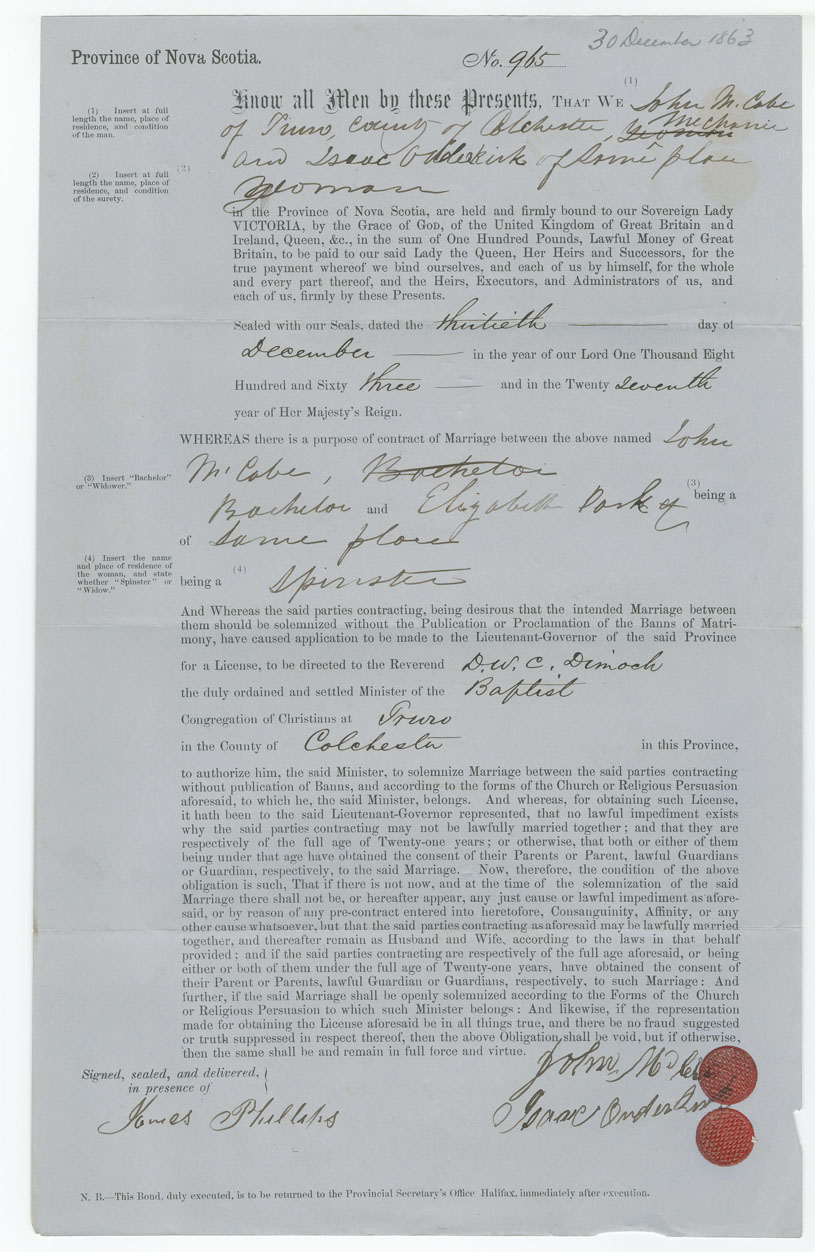 30 December 1863
Province of Nova Scotia.
No. 965
(1) Insert at full length the name, place of residence, and condition of the man.
Know all Men by these Presents, THAT WE (1) John McCabe
of Truro, County of Colchester, Yeoman Mechanic
(2) Insert at full length the name, place of residence, and condition of the surety.
(2)
and Isaac Onderkirk of Same place
Yeoman
in the Province of Nova Scotia, are held and firmly bound to our Sovereign Lady
VICTORIA, by the Grace of God, of the United Kingdom of Great Britain and
Ireland, Queen, &c., in the sum of One Hundred Pounds, Lawful Money of Great
Britain, to be paid to our said Lady the Queen, Her Heirs and Successors, for the
true payment whereof we bind ourselves, and each of us by himself, for the whole
and every part thereof, and the Heirs, Executors, and Administrators of us, and
each of us, firmly by these Presents.
Sealed with our Seals, dated the thirtieth day of
December in the year of our Lord One Thousand Eight
Hundred and Sixty three and in the Twenty Seventh
year of Her Majesty's Reign.
WHEREAS there is a purpose of contract of Marriage between the above named John
(3) Insert "Bachelor" or "Widower."
McCabe, Bachelor
Bachelor and Elizabeth (3) being a
of Same place
(4) Insert the name and place of residence of the woman, and state whether "Spinster" or "Widow."
being a (4) Spinster
And Whereas the said parties contracting, being desirous that the intended Marriage between
them should be solemnized without the Publication or Proclamation of the Banns of Matri-
mony, have caused application to be made to the Lieutenant-Governor of the said Province
for a License, to be directed to the Reverend D. W. C. Dimock
the duly ordained and settled Minister of the Baptist
Congregation of Christians at Truro
in the County of Colchester in this Province,
to authorize him, the said Minister, to solemnize Marriage between the said parties contracting
without publication of Banns, and according to the forms of the Church or Religious Persuasion
aforesaid, to which he, the said Minister, belongs. And whereas, for obtaining such License,
it hath been to the said Lieutenant-Governor represented, that no lawful impediment exists
why the said parties contracting may not be lawfully married together; and that they are
respectively of the full age of Twenty-one years; or otherwise, that both or either of them
being under that age have obtained the consent of their Parents or Parent, lawful Guardians
or Guardian, respectively, to the said Marriage. Now, therefore, the condition of the above
obligation is such, That if there is not now, and at the time of the solemnization of the said
Marriage there shall not be, or hereafter appear, any just cause or lawful impediment as afore-
said, or by reason of any pre-contract entered into heretofore, Consanguinity, Affinity, or any
other cause whatsoever, but that the said parties contracting as aforesaid may be lawfully married
together, and thereafter remain as Husband and Wife, according to the laws in that behalf
provided; and if the said parties contracting are respectively of the full age aforesaid, or being
either or both of them under the full age of Twenty-one years, have obtained the consent of
their Parent or Parents, lawful Guardian or Guardians, respectively, to such Marriage: And
further, if the said Marriage shall be openly solemnized according to the Forms of the Church
or Religious Persuasion to which such Minister belongs: And likewise, if the representation
made for obtaining the License aforesaid be in all things true, and there be no fraud suggested
or truth suppressed in respect thereof, then the above Obligation shall be void, but if otherwise,
then the same shall be and remain in full force and virtue.
Signed, sealed, and delivered,
in presence of
John
James Phillips
Isaac
N. B.—This Bond, duly executed, is to be returned to the Provincial Secretary's Office Halifax, immediately after execution.